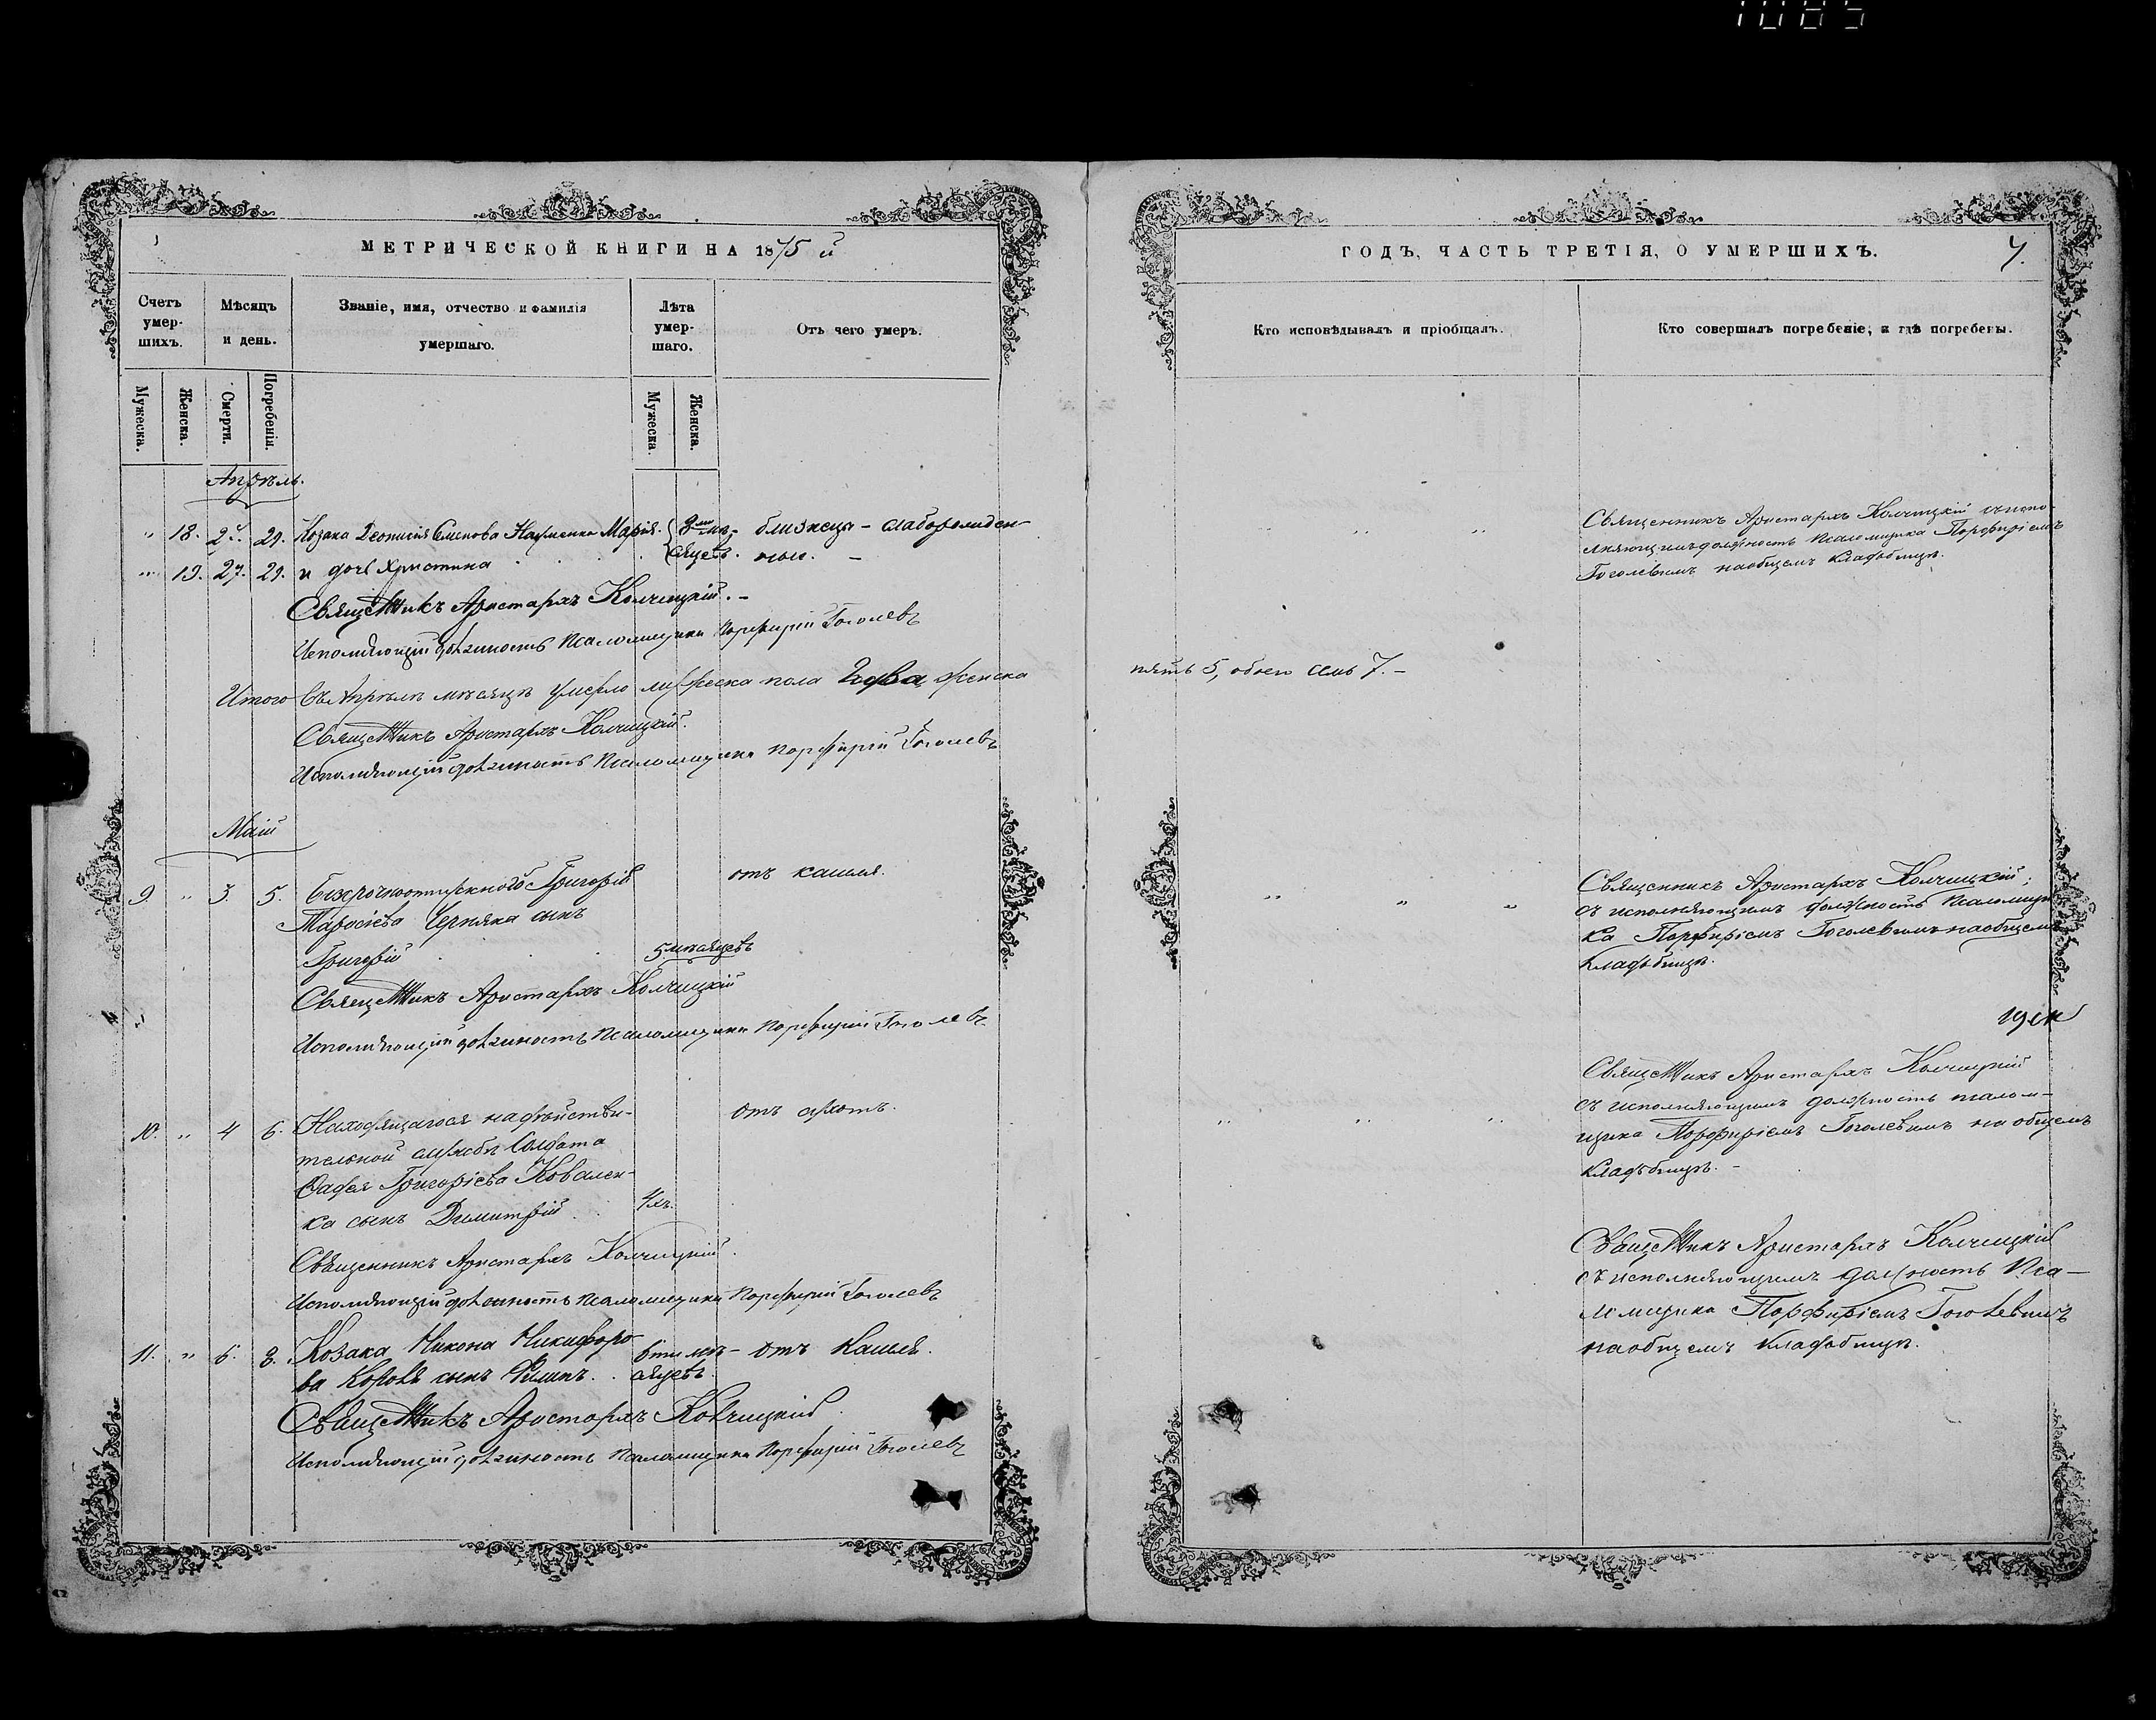 1085
МЕТРИЧЕСКОЙ КНИГИ НА 1875 й
Счетъ умер-шихъ.
Мѣсяцъ и день.
Званіе, имя, отчество и фамилія умершаго.
Лѣта умер-шаго.
Отъ чего умеръ.
Мужеска.
Женска.
Смерти.
Погребенія.
Мужеска
Женска.
Апрѣль.
" 18. 29. Козака Леонтія Семенова Науменка Марія. близнецы – слаборожден-
" 19. 27. 29. и дочь Христина ностью. –
Священникъ Аристархъ Колчицкій. –
Исполняющій должность псаломщика Порфирій Гоголевъ
Итого въ Апрѣлѣ мѣсяцѣ умерло мужеска пола 2 два, женска
Священникъ Аристархъ Колчицкій.
Исполняющій должность псаломщика Порфирій Гоголевъ
Маій
9. " 3. 5. Безсрочноотпускного Григорія отъ кашля.
Тарасіева Черняка сынъ
Григорій 5 мѣсяцевъ
Священникъ Аристархъ Колчицкій
Исполняющій должность псаломщика Порфирій Гоголевъ
10. " 4 6. Находящагося на дѣйстви-
тельной службѣ Солдата
Григоріева Ковален-
ка сынъ Димитрій
Священникъ Аристархъ Колчицкій.
Исполняющій должность псаломщика Порфирій Гоголевъ
11. " 6. 8. Козака Никона Никифоро- 6ти мѣ- отъ кашля.
ва Короля сынъ Филипъ. сяцевъ.
Священникъ Аристархъ Колчицкій.
Исполняющій должность псаломщика Порфирій Гоголевъ
ГОДЪ, ЧАСТЬ ТРЕТІЯ, О УМЕРШИХЪ.
Кто исповѣдывалъ и пріобщалъ.
Кто совершалъ погребеніе, и гдѣ погребены.
Священникъ Аристархъ Колчицкій съ испо-
лняющимъ должность псаломщика Порфиріемъ
Гоголевымъ на общемъ кладбищѣ.
пять 5, обоего семь 7. –
Священникъ Аристархъ Колчицкій;
съ исполняющимъ должность псаломщи-
ка Порфиріемъ Гоголевымъ на общемъ
кладбищѣ.
Священникъ Аристархъ Колчицкій
съ исполняющимъ должность псалом-
щика Порфиріемъ Гоголевымъ на общемъ
кладбищѣ. –
Священникъ Аристархъ Колчицкій
съ исполняющимъ должность Пса-
ломщика Порфиріемъ Гоголевымъ
на общемъ кладбищѣ.